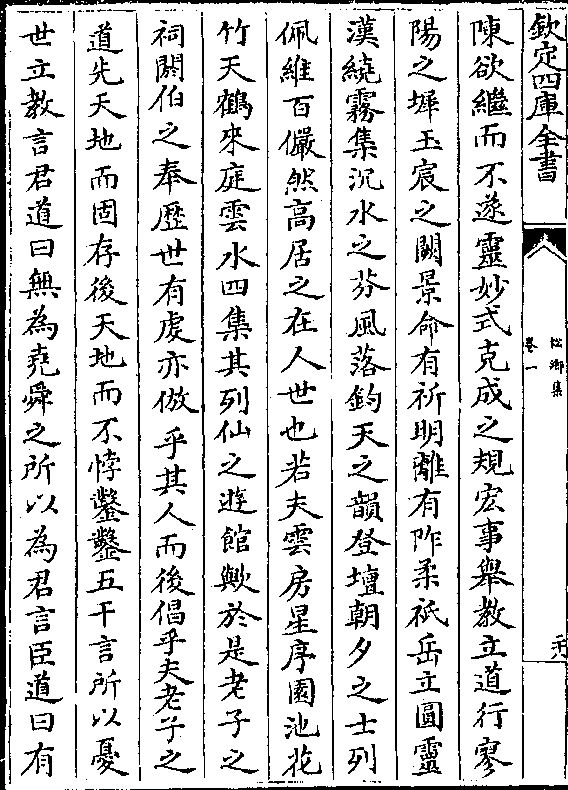 欽定四庫全書
松鄉集
卷一
陳欲繼而不遂靈妙式克成之規宏事舉教立道行寥
陽之墀玉宸之闕景命有祈明離有阼柔祇岳立圓靈
漢繞霧集沉水之芬風落鈞天之韻登壇朝夕之士列
佩維百儼然高居之在人世也若夫雲房星序園池花
竹天鶴來庭雲水四集其列仙之遊館歟於是老子之
祠閼伯之奉歴世有虔亦倣乎其人而後倡乎夫老子之
道先天地而固存後天地而不悖鑿鑿五千言所以憂
世立教言君道曰無為堯舜之所以為君言臣道曰有